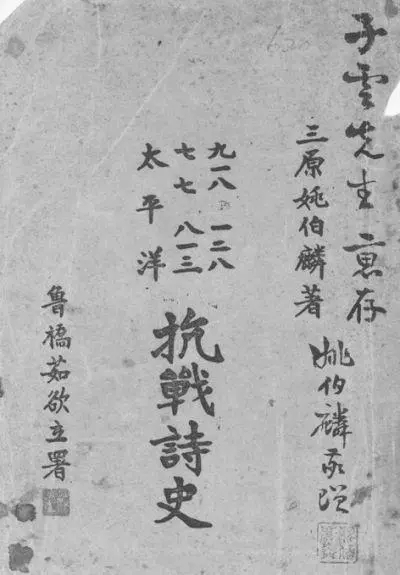 子雲先生惠存
三原姚伯麟著
姚伯麟敬贈
九一八 一二八
七七 八一三
太平洋
抗戰詩史
魯橋茹欲立署